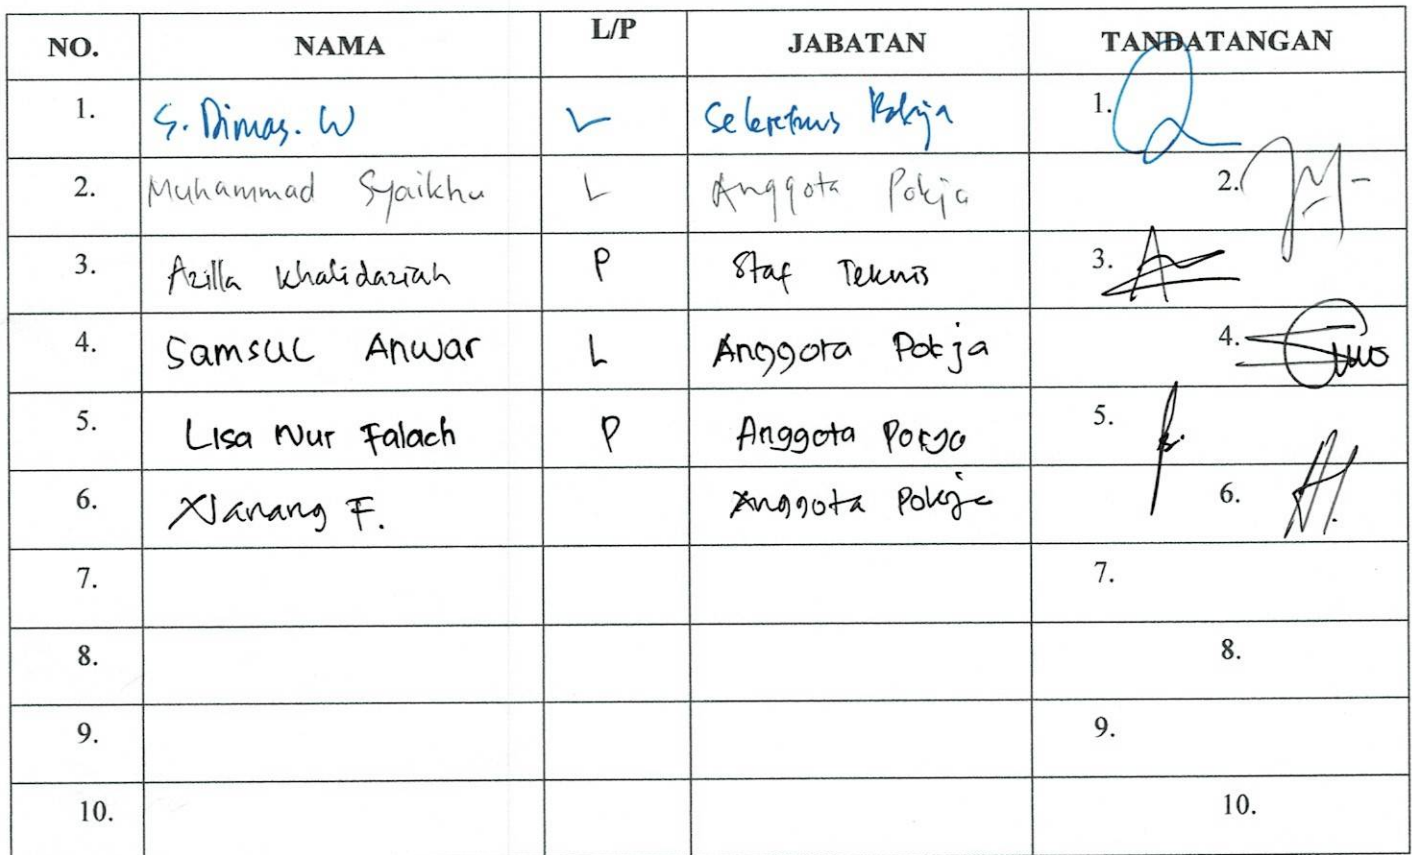 NO. NAMA L/P JABATAN TANDATANGAN
1. S. Dimas. W L Sekretaris Pokja 1.
2. Muhammad Syaikhu L Anggota Pokja 2.
3. Azilla Khalidaziah P Staf Teknis 3.
4. Samsul Anwar L Anggota Pokja 4.
5. Lisa Nur Falach P Anggota Pokja 5.
6. Nanang F. Anggota Pokja 6.
7. 7.
8. 8.
9. 9.
10. 10.